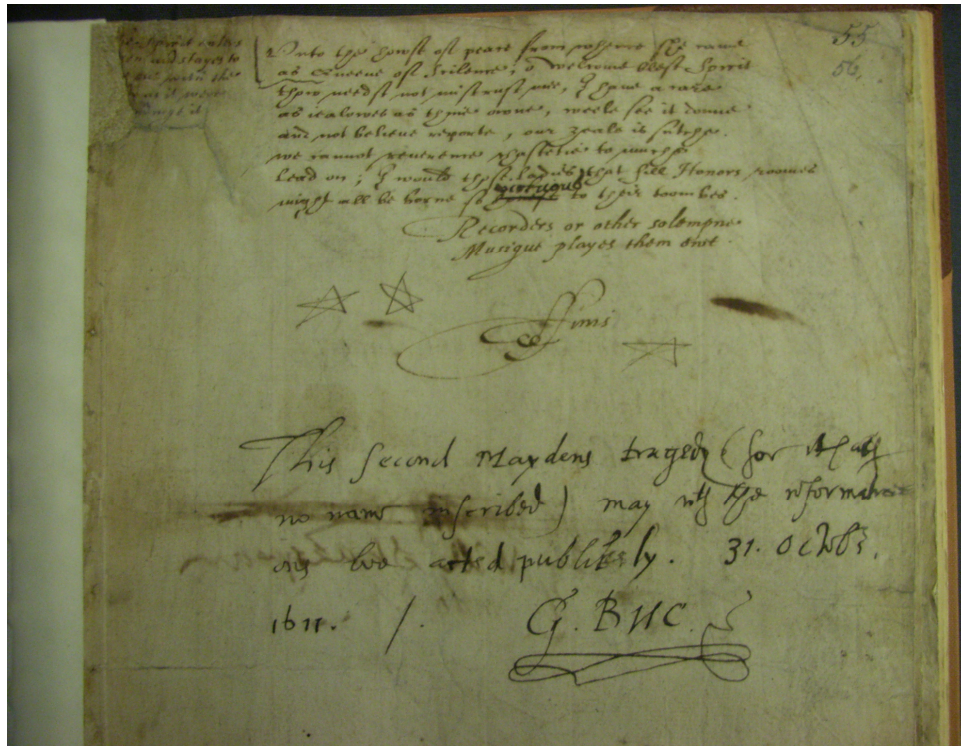 Spirit enters
and stayes to
with the
it were
55
56.
Vnto the howse of peace from whence she came
as Queene of silence, o welcome blest Spirit
thow needst not mistrust me, I haue a care
as iealowes as thine owne, weele see it donne
and not believe reporte, our zeale is sutche.
we cannot reverence chastetie to mutche
Lead on; I would those Ladies that fill Honors roomes
might all be borne so vertuous to their toombes.
Recorders or other solempne
Musique playes them owt.
Finis
This second Maydens tragedy (for it hath
no name inscribed) may wth the reformati
ons bee acted publikely. 31. Octobr.
1611. /. G. BUC.